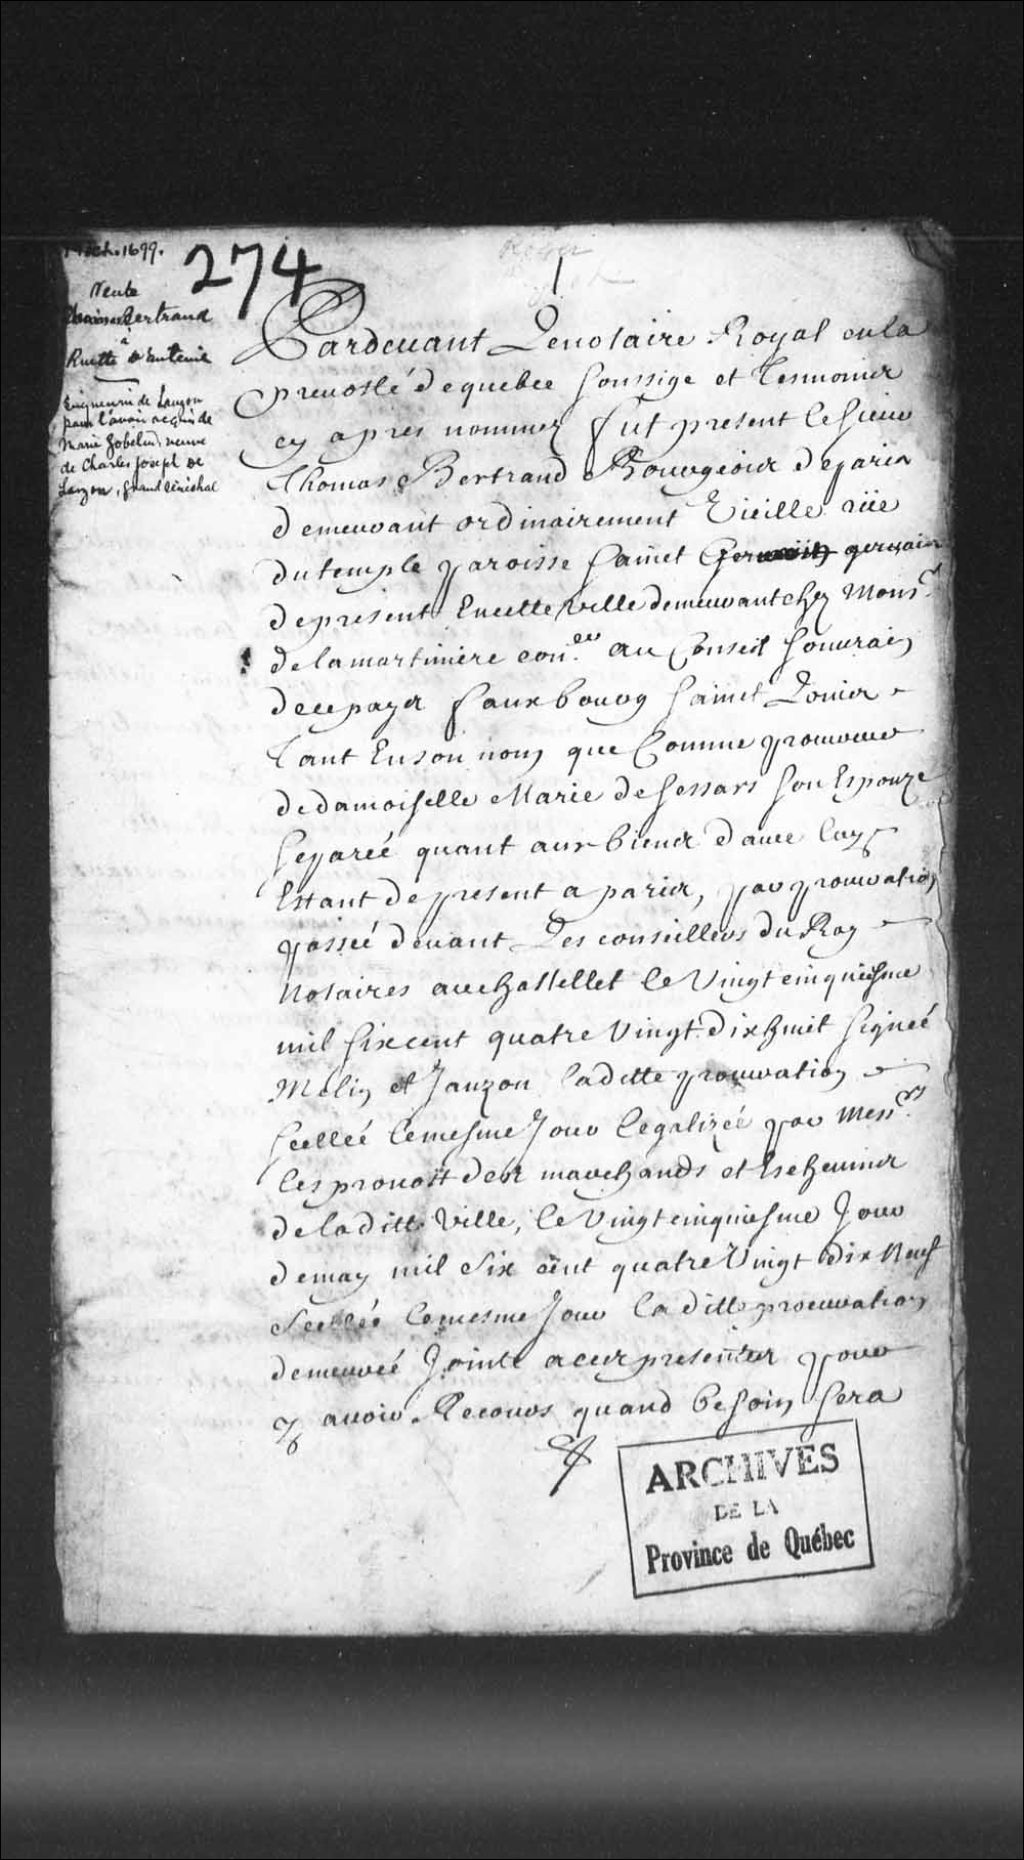 8ch. 1699.
274
1
Vente
Bertrand
à
Ruette d'Auteuil
Seigneurie de Lauzon
pour l'avoir acquis de
Marie Gobelin, veuve
de Charles Joseph de
Lauzon, grand sénéchal
Pardevant Le notaire Royal en la
prevosté de quebec soussigé et tesmoins
cy apres nommez fut present le sieur
Thomas Bertrand Bourgeois de paris
demeurant ordinairement Vieille rüe
du temple paroisse sainct gervais
de present En cette ville demeurant chez Monsr
de la martiniere coner au Conseil souverain
de ce payes fauxbourg sainct Louis
tant En son nom que Comme procureur
de damoiselle Marie desessars son Espouze
separée quant aux biens d'avec luy
Estant de present a paris, par procuration
passée devant Les conseillers du Roy
Notaires au chastellet le Vingt cinquiesme
mil six cent quatre Vingt dix huit signée
Melin et Jauzon ladette procuration
scellée le mesme Jour legalizée par Messrs
les provost des marchands et Eschevins
de laditte Ville, le Vingt cinquiesme Jour
de may mil Six cent quatre Vingt dix Neuf
Scellée le mesme Jour laditte procuration
demeurée Jointe a ces presentes pour
y avoir Recours quand besoin sera
ARCHIVES
DE LA
Province de Québec